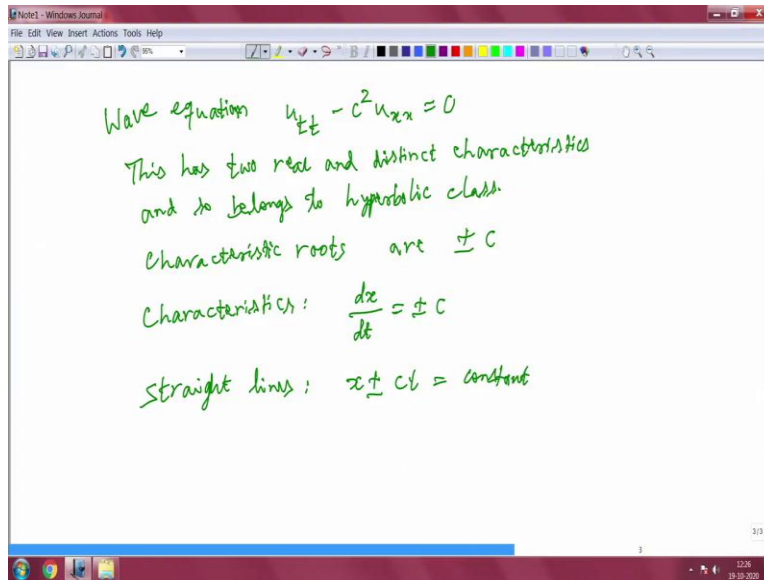 Note1 - Windows Journal
File Edit View Insert Actions Tools Help
95%
Wave equation u_tt - c²u_xx = 0
This has two real and distinct characteristics
and so belongs to hyperbolic class.
Characteristic roots are ± c
Characteristics: dx/dt = ± c
Straight lines: x ± ct = constant
3/3
3
1226
19-10-2020